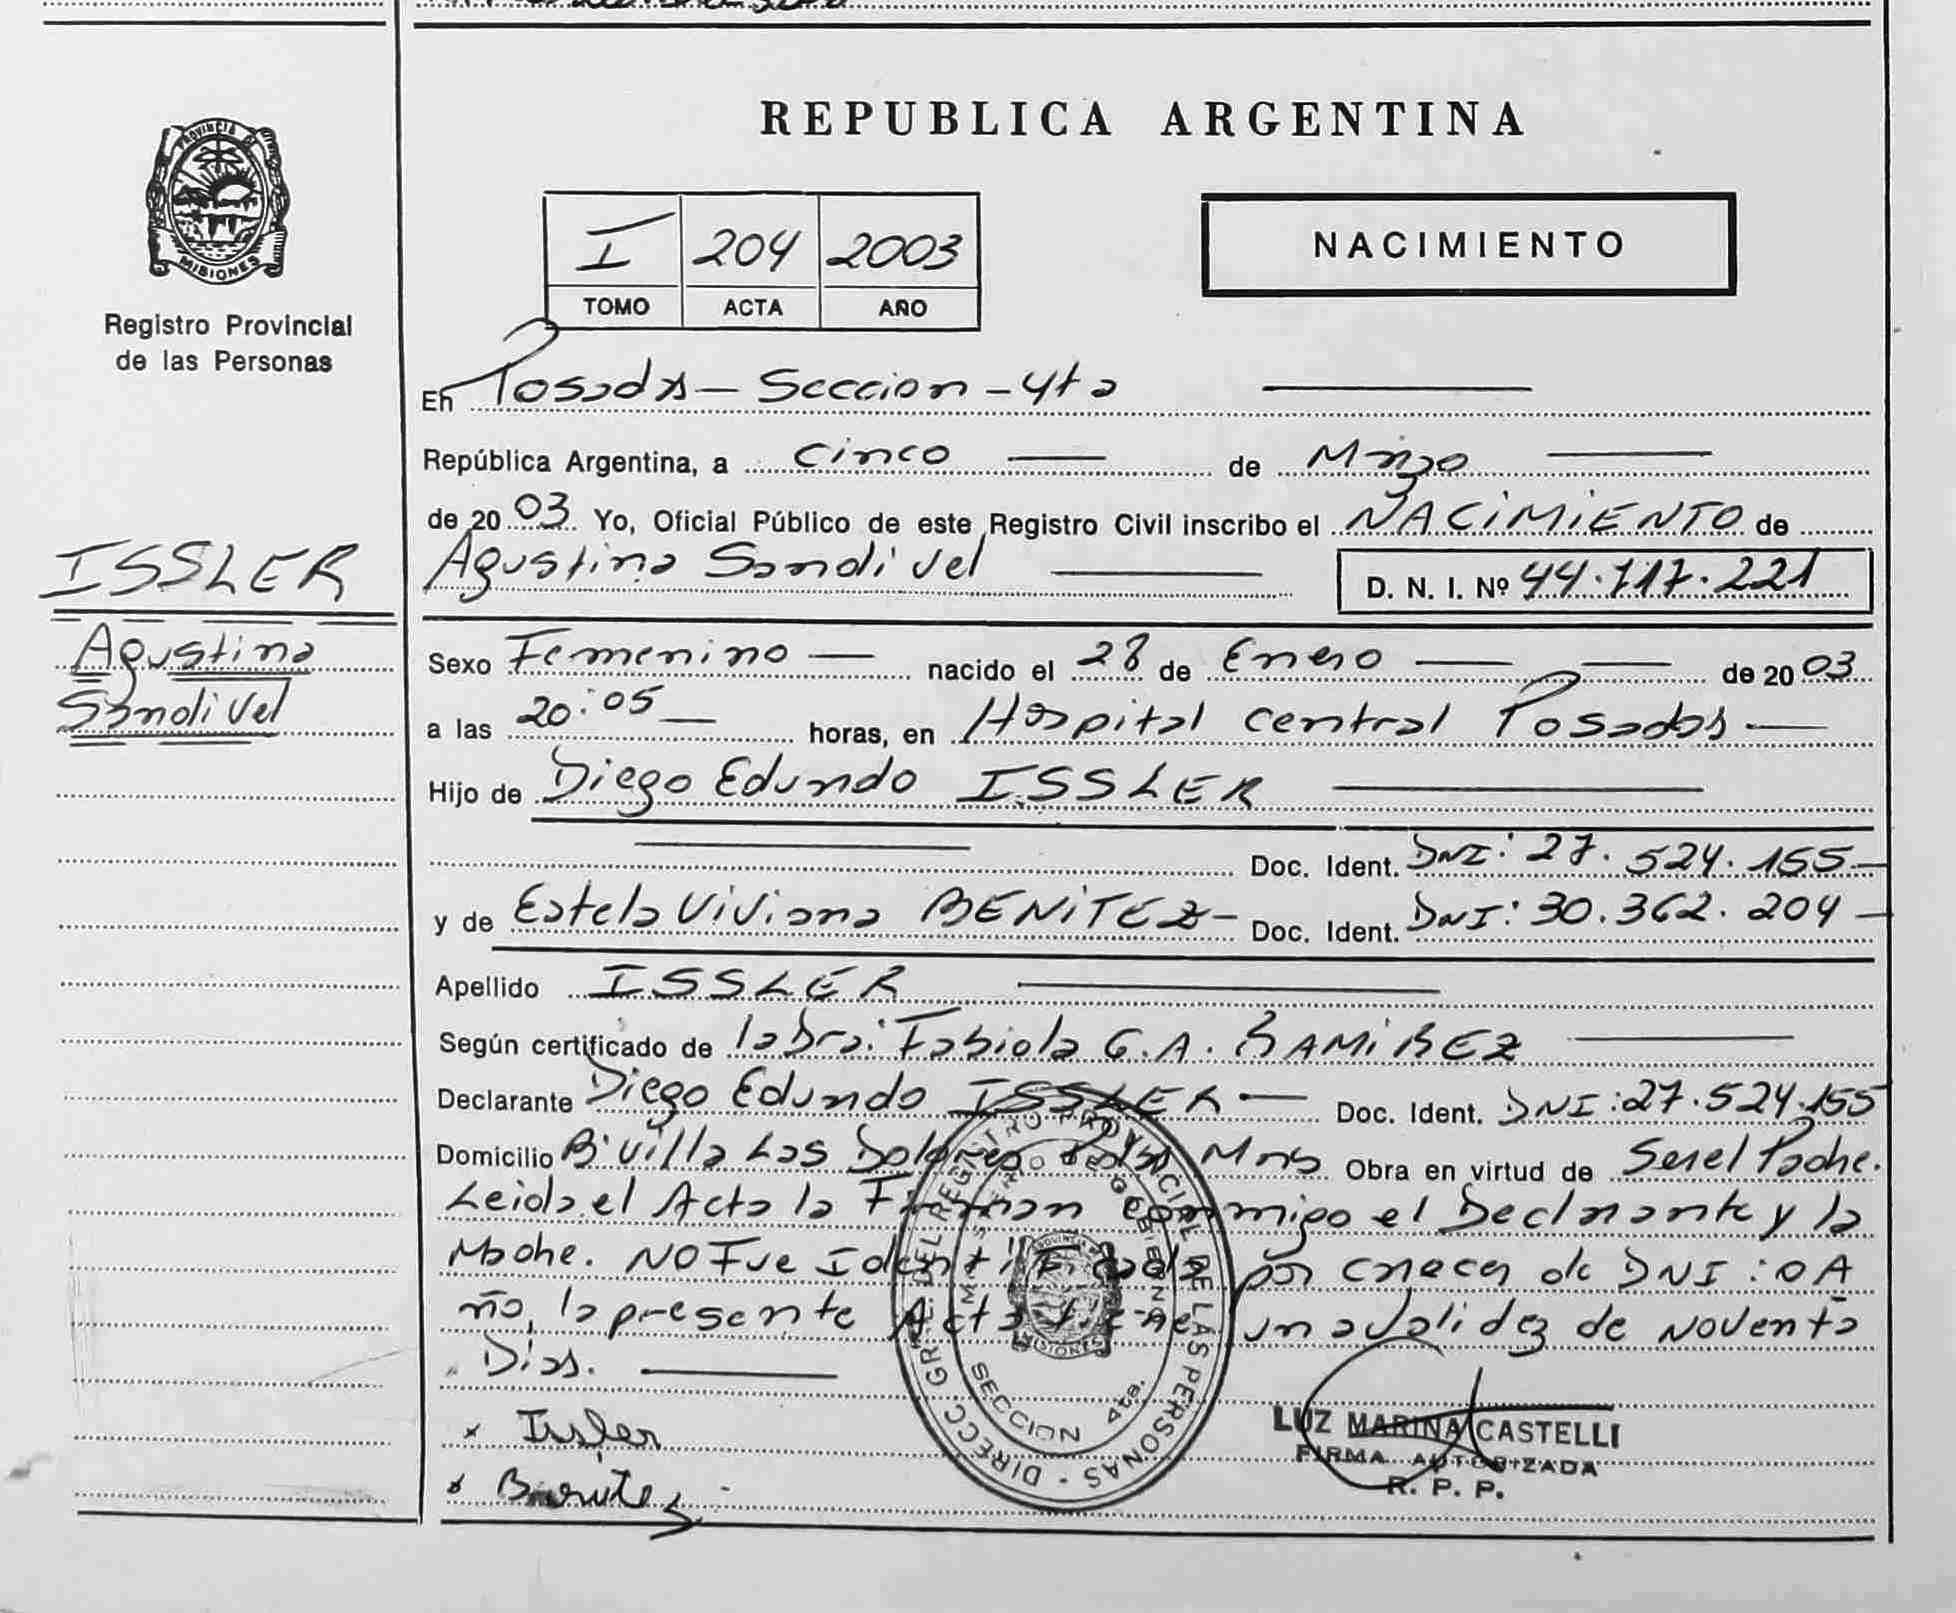 REPUBLICA ARGENTINA
PROVINCIA DE
MISIONES
Registro Provincial
de las Personas
I 204 2003
TOMO ACTA AÑO
NACIMIENTO
En Posadas - Seccion - 4ta
República Argentina, a cinco de Marzo
de 2003 Yo, Oficial Público de este Registro Civil inscribo el NACIMIENTO de
Agustina Sandivel D. N. I. Nº 44.717.221
ISSLER
Agustina
Sandivel
Sexo Femenino nacido el 28 de Enero de 2003
a las 20:05 horas, en Hospital Central Posadas
Hijo de Diego Edundo ISSLER
Doc. Ident. DNI: 27.524.155
y de Estela Viviana BENITEZ - Doc. Ident. DNI: 30.362.204
Apellido ISSLER
Según certificado de la Dra: Fabiola G.A. RAMIREZ
Declarante Diego Edundo ISSLER - Doc. Ident. DNI: 27.524.155
Domicilio Bº Villa Las Dolores Mns Obra en virtud de Ser el Padre.
Leida el Acta la Firman conmigo el Declarante y la
Madre. NO Fue Identificada por carecer de DNI: OA
ño, la presente Acta tiene una validez de Noventa
Dias.
Issler
Benitez
DIRECC. GRAL. DEL REGISTRO PROVINCIAL DE LAS PERSONAS
MINISTERIO DE GOBIERNO
MISIONES
SECCION 4ta.
LUZ MARINA CASTELLI
FIRMA AUTORIZADA
R. P. P.